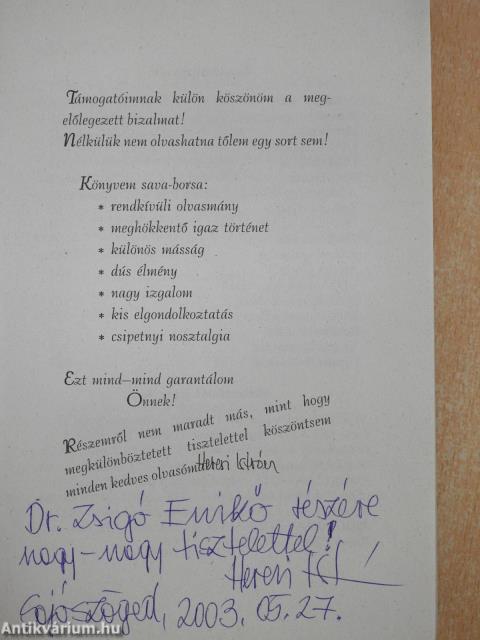 Támogatóimnak külön köszönöm a meg-
előlegezett bizalmat!
Nélkülük nem olvashatna tőlem egy sort sem!
Könyvem sava-borsa:
* rendkívüli olvasmány
* meghökkentő igaz történet
* különös másság
* dús élmény
* nagy izgalom
* kis elgondolkoztatás
* csipetnyi nosztalgia
Ezt mind–mind garantálom
Önnek!
Részemről nem maradt más, mint hogy
megkülönböztetett tisztelettel köszöntsem
minden kedves olvasóm
Heresi István
Dr. Zsigó Enikő részére
nagy-nagy tisztelettel!
Heresi
Sajószöged, 2003. 05. 27.
Antikvárium.hu